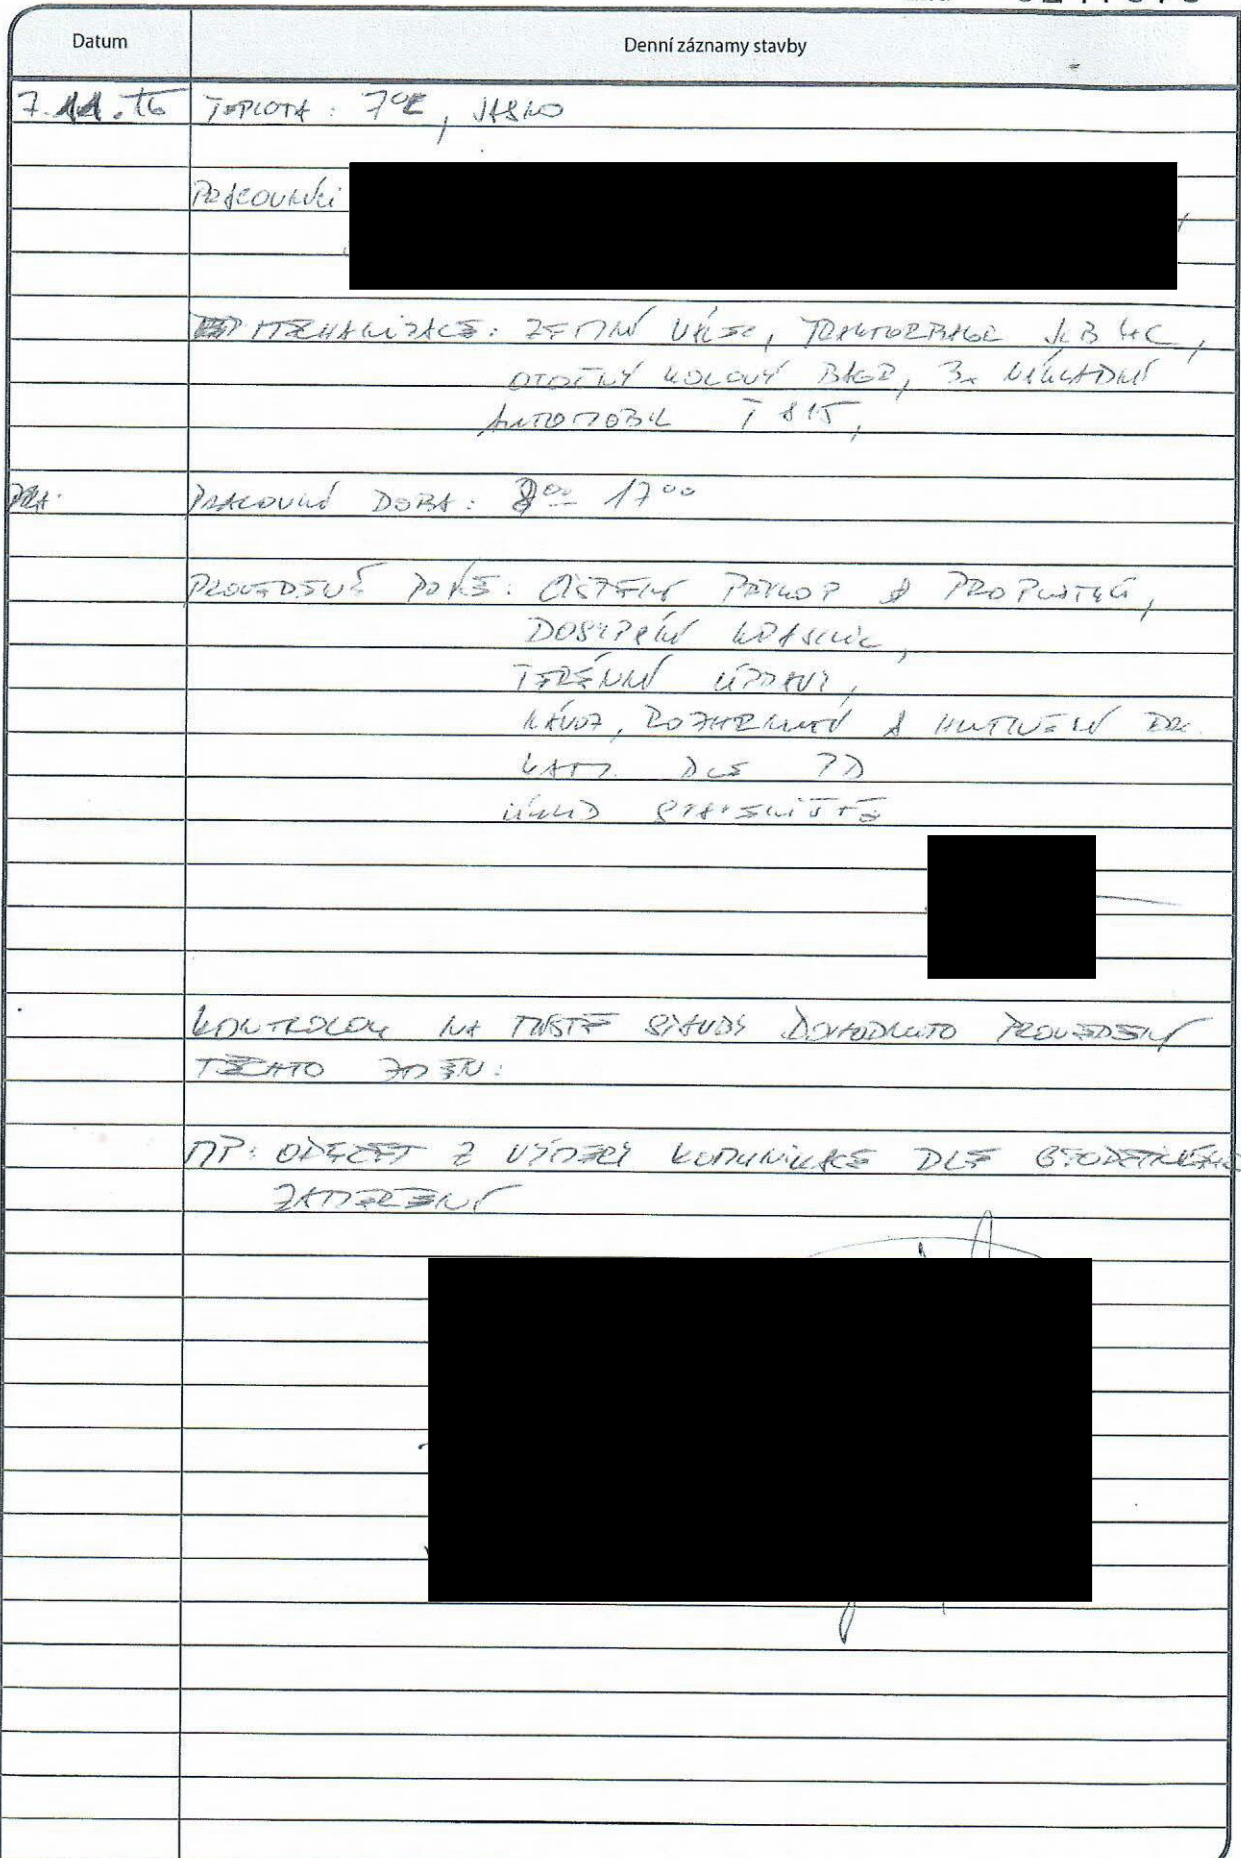 Datum
Denní záznamy stavby
7.11.16 TEPLOTA: 7°C, JASNO
PRACOVNÍCI
MECHANIZACE: ZEMNÍ VÁLEC, TRAKTORBAGR JCB 4C,
OTOČNÝ KOLOVÝ BAGR, 3x NÁKLADNÍ
AUTOMOBIL T 815,
PRACOVNÍ DOBA: 800 1700
PROVEDENÉ PRÁCE: ČIŠTĚNÍ PŘÍKOP A PROPUSTKŮ,
DOSYPÁNÍ KRAJNIC,
TERÉNNÍ ÚPRAVY,
NÁVOZ, ROZHRNUTÍ A HUTNĚNÍ DR.
KAM. DLE PD
ÚKLID STAVENIŠTĚ
KONTROLOU NA MÍSTĚ STAVBY DOHODNUTO PROVEDENÍ
TĚCHTO ZMĚN:
MP: ODEČET Z VÝMĚRY KOMUNIKACE DLE GEODETICKÉHO
ZAMĚŘENÍ